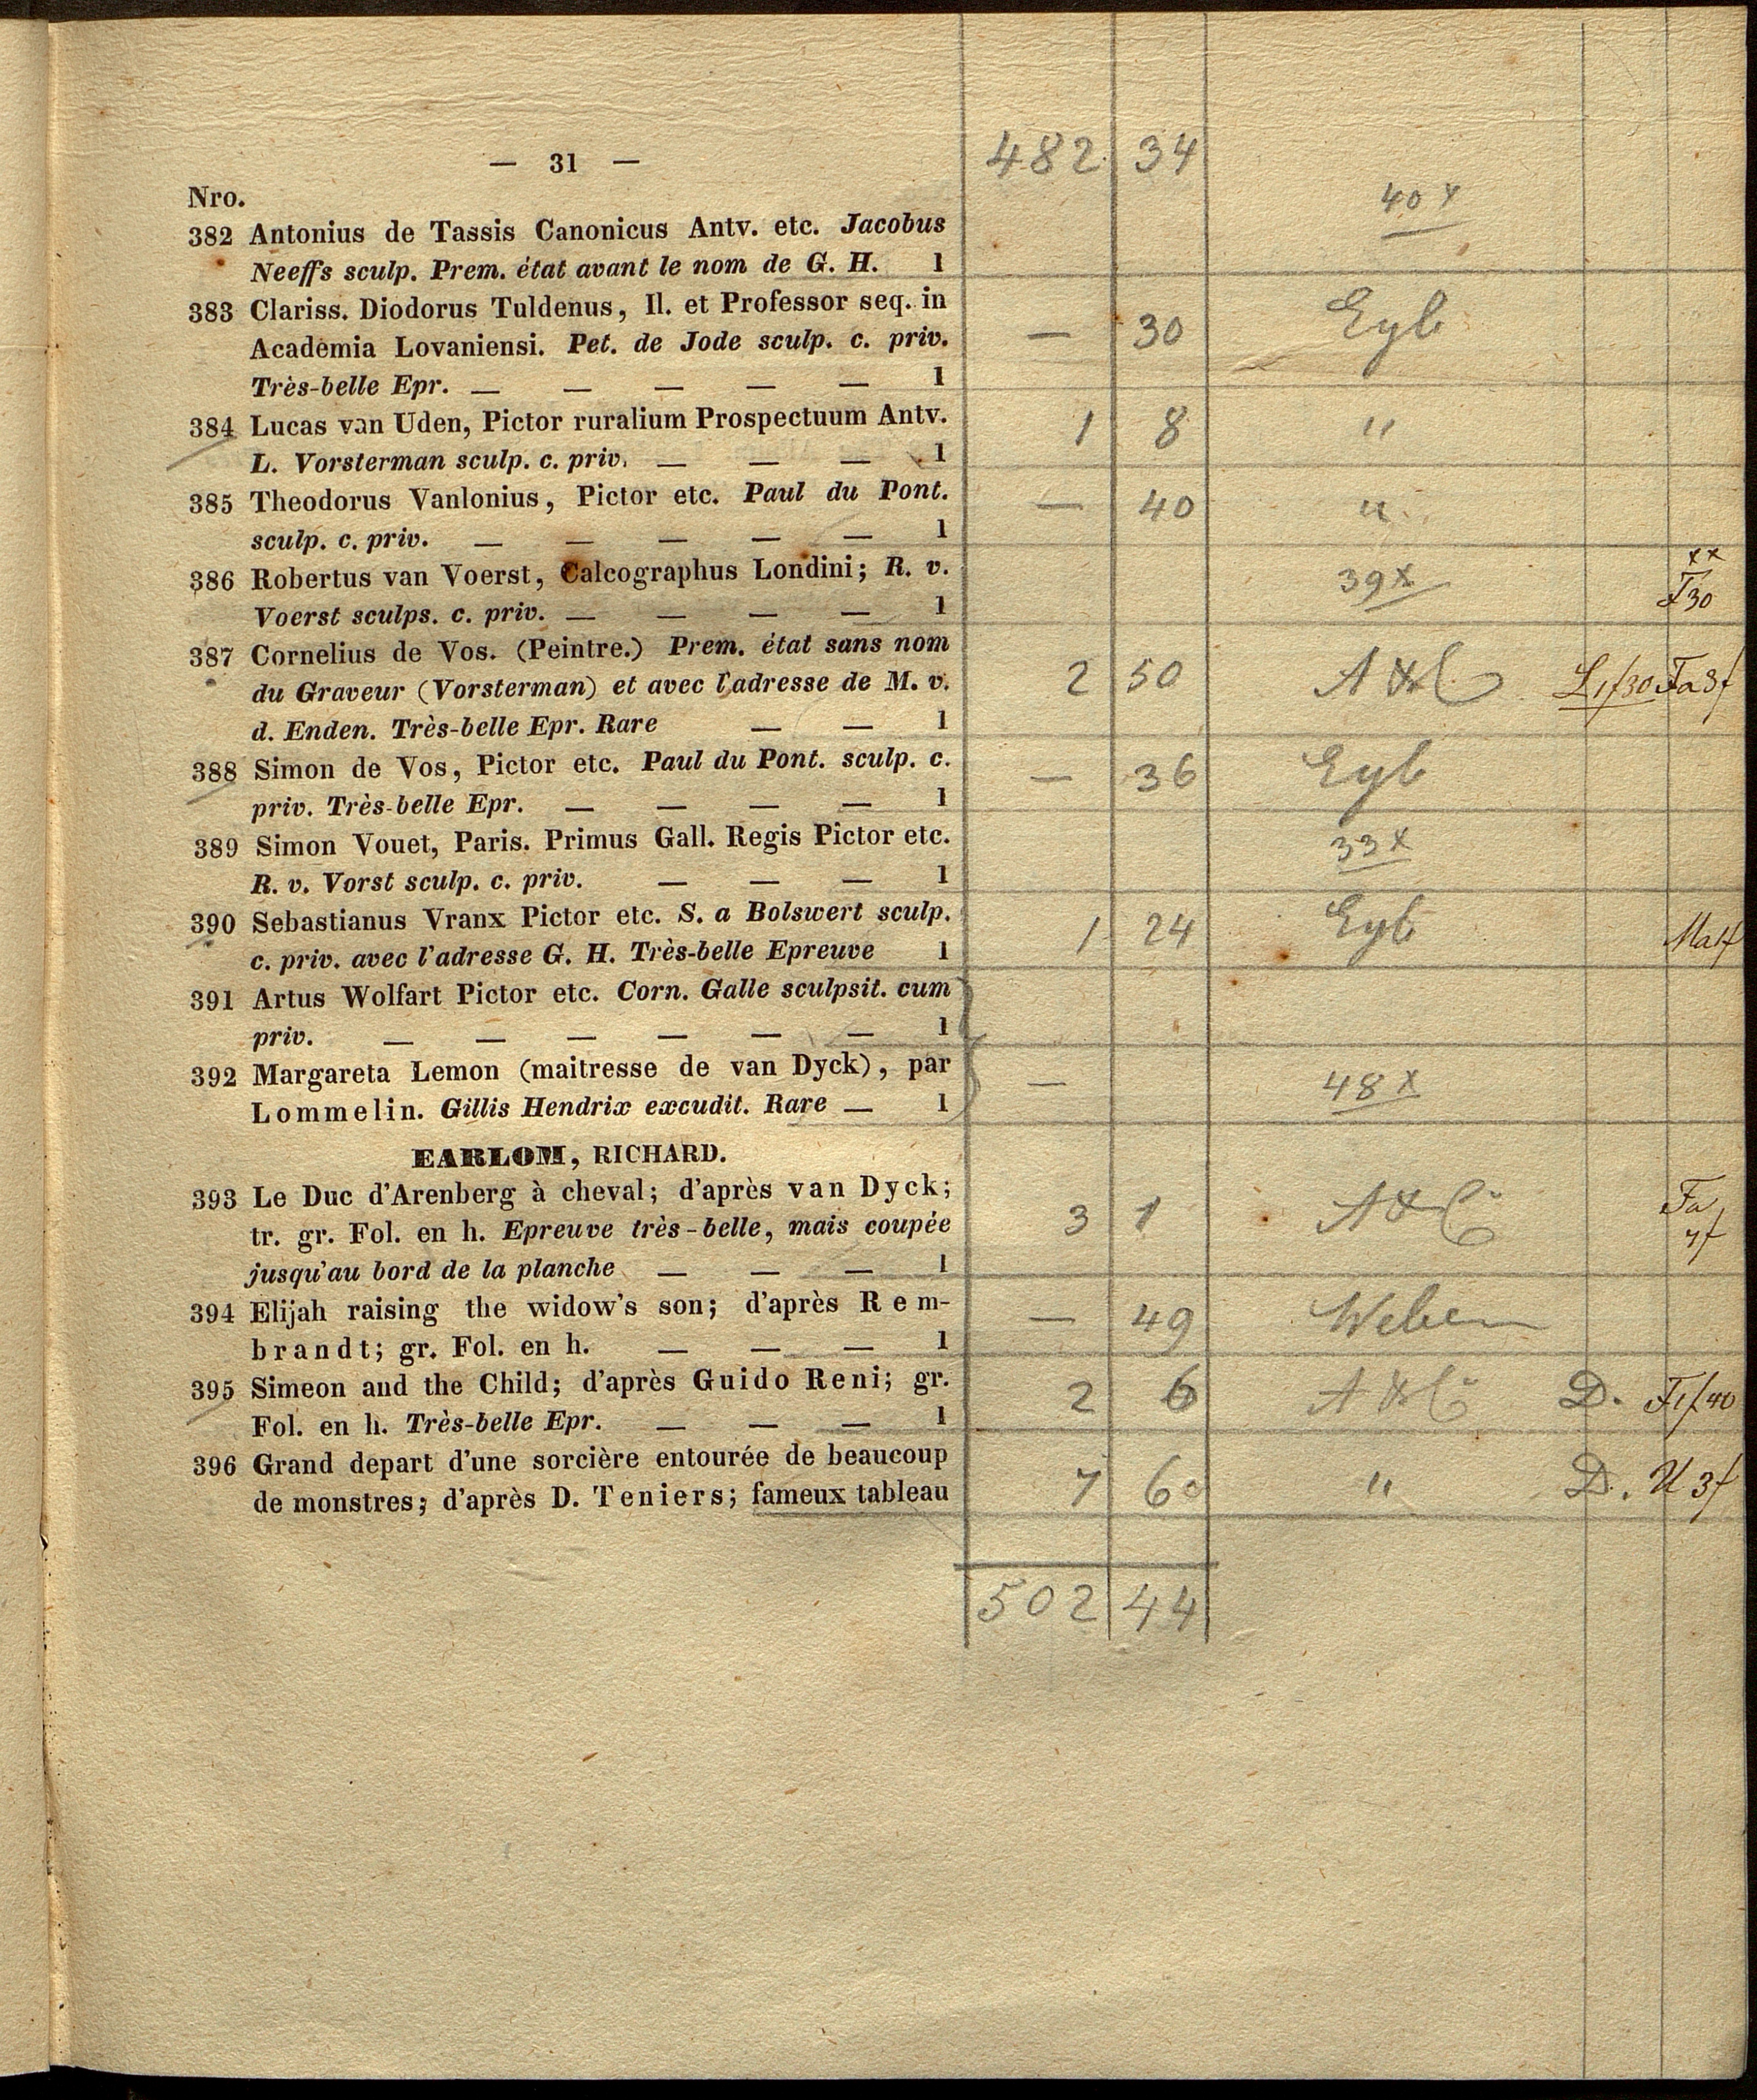 — 31 — 482 34
Nro. 40 x
382 Antonius de Tassis Canonicus Antv. etc. Jacobus
Neeffs sculp. Prem. état avant le nom de G. H. 1
383 Clariss. Diodorus Tuldenus, Il. et Professor seq. in
Academia Lovaniensi. Pet. de Jode sculp. c. priv. — 30 Eyb
Très-belle Epr. — — — — — 1
384 Lucas van Uden, Pictor ruralium Prospectuum Antv. 1 8 "
L. Vorsterman sculp. c. priv. — — — 1
385 Theodorus Vanlonius, Pictor etc. Paul du Pont. — 40 "
sculp. c. priv. — — — — — 1
386 Robertus van Voerst, Calcographus Londini; R. v. 39 x xx
Voerst sculps. c. priv. — — — — 1 F30
387 Cornelius de Vos. (Peintre.) Prem. état sans nom
du Graveur (Vorsterman) et avec l'adresse de M. v. 2 50 A & C L1f30 Fa3f
d. Enden. Très-belle Epr. Rare — — 1
388 Simon de Vos, Pictor etc. Paul du Pont. sculp. c. — 36 Eyb
priv. Très-belle Epr. — — — — 1
389 Simon Vouet, Paris. Primus Gall. Regis Pictor etc. 33 x
R. v. Vorst sculp. c. priv. — — — 1
390 Sebastianus Vranx Pictor etc. S. a Bolswert sculp. 1 24 Eyb Ma1f
c. priv. avec l'adresse G. H. Très-belle Epreuve 1
391 Artus Wolfart Pictor etc. Corn. Galle sculpsit. cum
priv. — — — — — — 1
392 Margareta Lemon (maitresse de van Dyck), par — 48 x
Lommelin. Gillis Hendrix excudit. Rare — 1
EARLOM, RICHARD.
393 Le Duc d'Arenberg à cheval; d'après van Dyck; Fa
tr. gr. Fol. en h. Epreuve très-belle, mais coupée 3 1 A & C
jusqu'au bord de la planche — — — 1
394 Elijah raising the widow's son; d'après Rem- — 49 Weber
brandt; gr. Fol. en h. — — — 1
395 Simeon and the Child; d'après Guido Reni; gr. 2 6 A & C D. F1f40
Fol. en h. Très-belle Epr. — — — 1
396 Grand depart d'une sorcière entourée de beaucoup
de monstres; d'après D. Teniers; fameux tableau 7 60 " D. U 3f
502 44